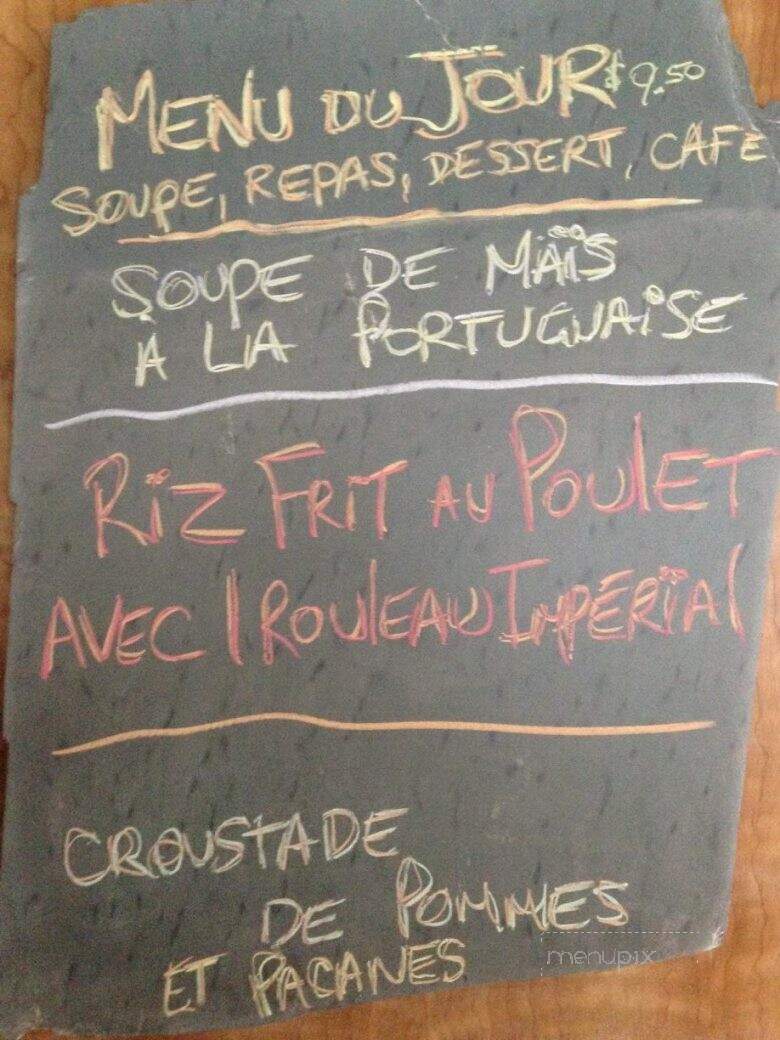 MENU DU JOUR $9.50
SOUPE, REPAS, DESSERT, CAFE
SOUPE DE MAÏS
A LA PORTUGUAISE
RIZ FRIT AU POULET
AVEC 1 ROULEAU IMPÉRIAL
CROUSTADE
DE POMMES
ET PACANES
menupix